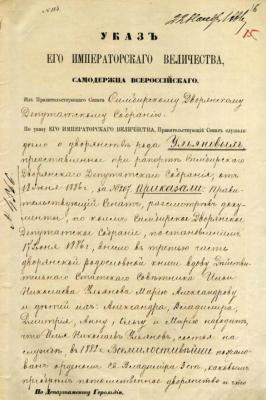 УКАЗЪ
ЕГО ИМПЕРАТОРСКАГО ВЕЛИЧЕСТВА,
САМОДЕРЖЦА ВСЕРОССІЙСКАГО.
Изъ Правительствующаго Сената Симбирскому Дворянскому
Депутатскому Собранію.
По указу ЕГО ИМПЕРАТОРСКАГО ВЕЛИЧЕСТВА, Правительствующій Сенатъ слушали:
дѣло о дворянствѣ рода Ульяновыхъ
представленное при рапортѣ Симбирскаго
Дворянскаго Депутатскаго Собранія, отъ
Іюня 1886 г. за № Приказали: Прави-
тельствующій Сенатъ, разсмотрѣвъ доку-
менты, по коимъ Симбирское Дворянское
Депутатское Собраніе, постановленіемъ
17 Іюня 1886 г., внесло въ третью часть
дворянской родословной книги вдову Дѣйстви-
тельнаго Статскаго Совѣтника Ильи
Николаева Ульянова Марію Александрову
и дѣтей ихъ: Александра, Владиміра,
Дмитрія, Анну, Ольгу и Марію находитъ,
что Илья Николаевъ Ульяновъ, состоя на
службѣ въ 1882 г. Всемилостивѣйше пожало-
ванъ орденомъ Св. Владиміра 3 ст., каковымъ
пріобрѣлъ потомственное дворянство и что
По Департаменту Герольдіи.